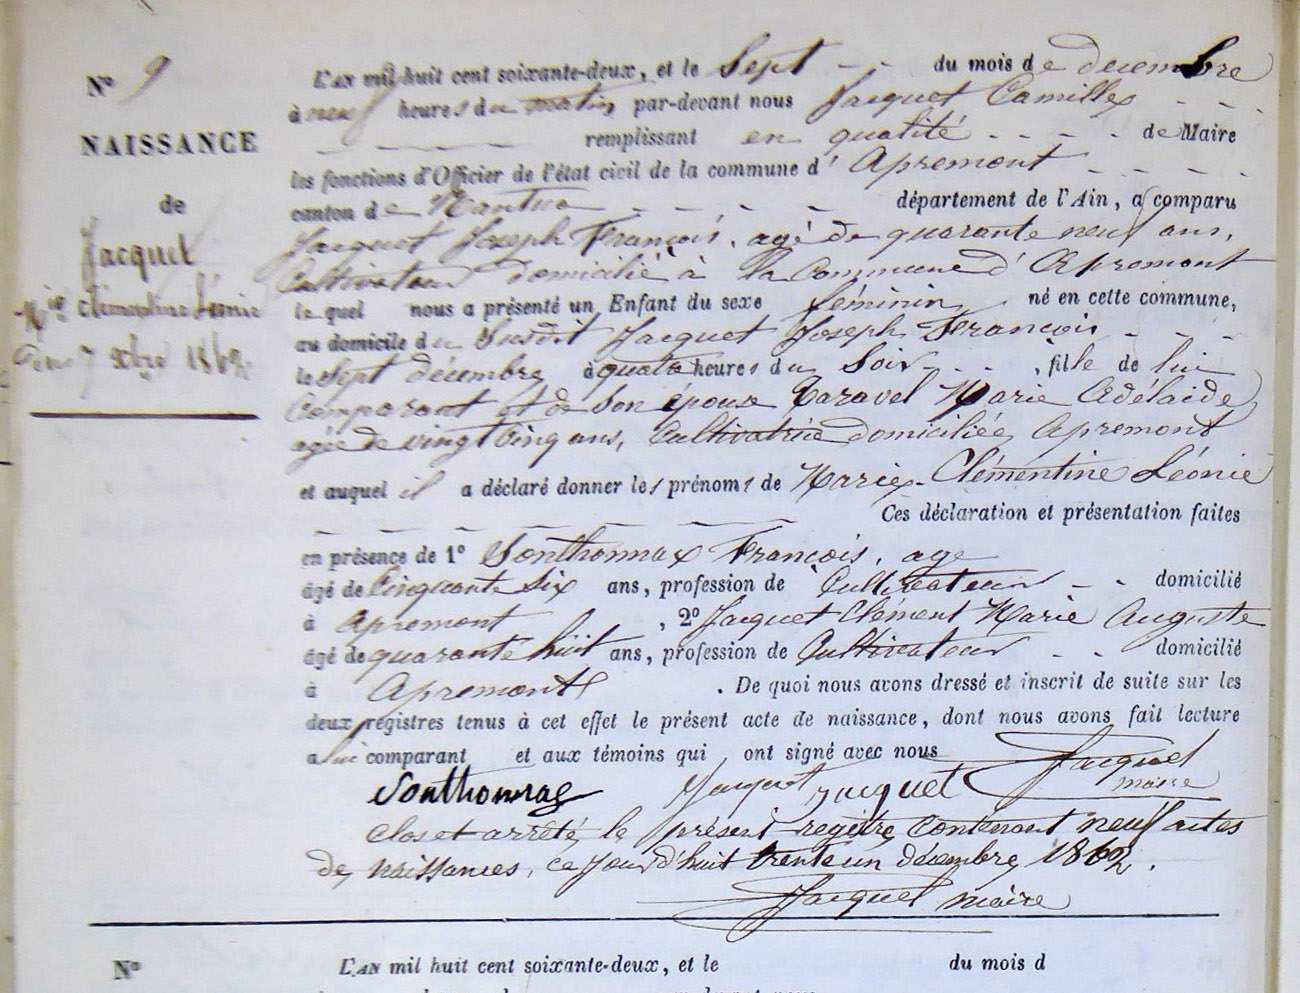 N° 9
NAISSANCE
de
Jacquet
Mie Clémentine Léonie
7 xbre 1862
L'AN mil huit cent soixante-deux, et le Sept du mois de décembre
à neuf heures du matin par-devant nous Jacquet Camille
remplissant en qualité de Maire
les fonctions d'Officier de l'état civil de la commune d'Apremont
canton de Nantua département de l'Ain, a comparu
Jacquet Joseph François, agé de quarante neuf ans,
Cultivateur domicilié à la Commune d'Apremont
lequel nous a présenté un Enfant du sexe féminin né en cette commune,
au domicile du Susdit Jacquet Joseph François
le Sept décembre à quatre heures du Soir, fille de lui
Comparant et de Son épouse Caravel Marie Adélaide
agée de vingt Cinq ans, Cultivatrice domiciliée Apremont
et auquel il a déclaré donner les prénoms de Marie Clémentine Léonie
Ces déclaration et présentation faites
en présence de 1° Sonthonnax François, age
âgé de Cinquante Six ans, profession de Cultivateur domicilié
à Apremont, 2° Jacquet Clément Marie Auguste
âgé de quarante huit ans, profession de Cultivateur domicilié
à Apremont. De quoi nous avons dressé et inscrit de suite sur les
deux registres tenus à cet effet le présent acte de naissance, dont nous avons fait lecture
a lui comparant et aux témoins qui ont signé avec nous
Jacquet
maire
Sonthonnax Jacquet Jacquet
Clos et arrêté le présent régitre Contenant neuf actes
de naissances, ce Jourd'huit trente un décembre 1862.
Jacquet maire
N° L'AN mil huit cent soixante-deux, et le du mois d